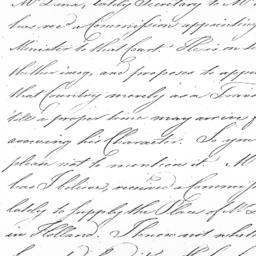 Mr Dana, lately Secretary to Mr
has recd a Commission appointing
Minister to that Court. He is on his
thither incog, and proposes to appear
that Country merely as a Travel
till a proper time may arrive for
avowing his Character. So you
please not to mention it. Mr
has I believe, received a Commission
lately to supply the Place of Mr L
in Holland. I know not whether